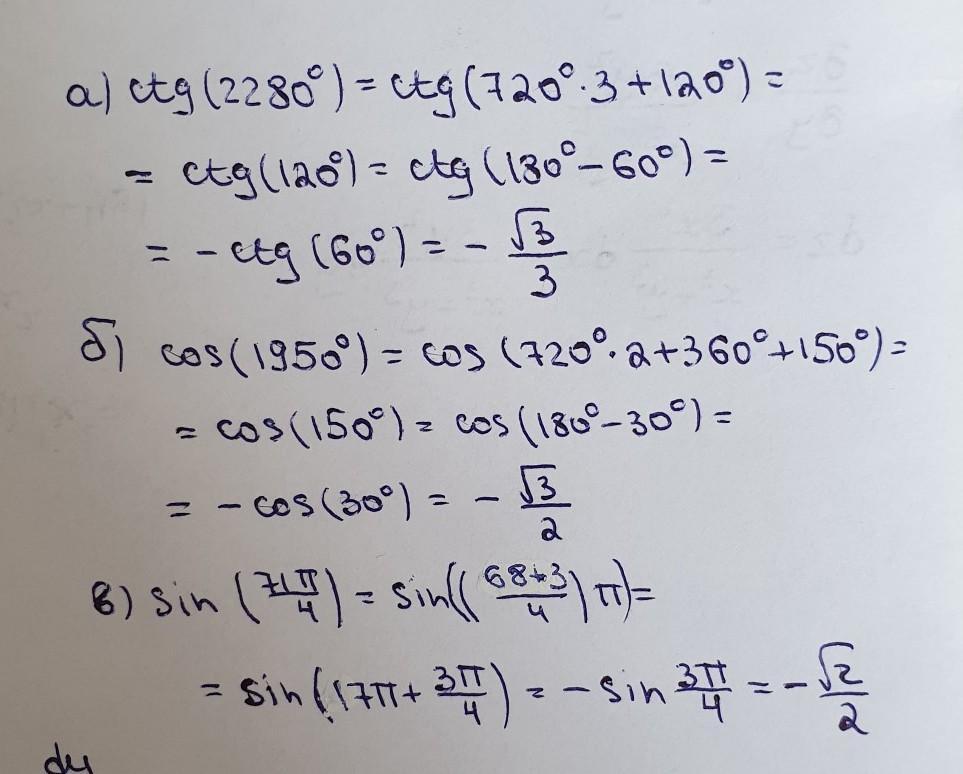 а) ctg(2280°) = ctg(720°·3+120°) =
= ctg(120°) = ctg(180°-60°) =
= -ctg(60°) = - √3/3
б) cos(1950°) = cos(720°·2+360°+150°) =
= cos(150°) = cos(180°-30°) =
= -cos(30°) = - √3/2
в) sin(71π/4) = sin((68+3/4)π) =
= sin(17π+3π/4) = -sin 3π/4 = -√2/2